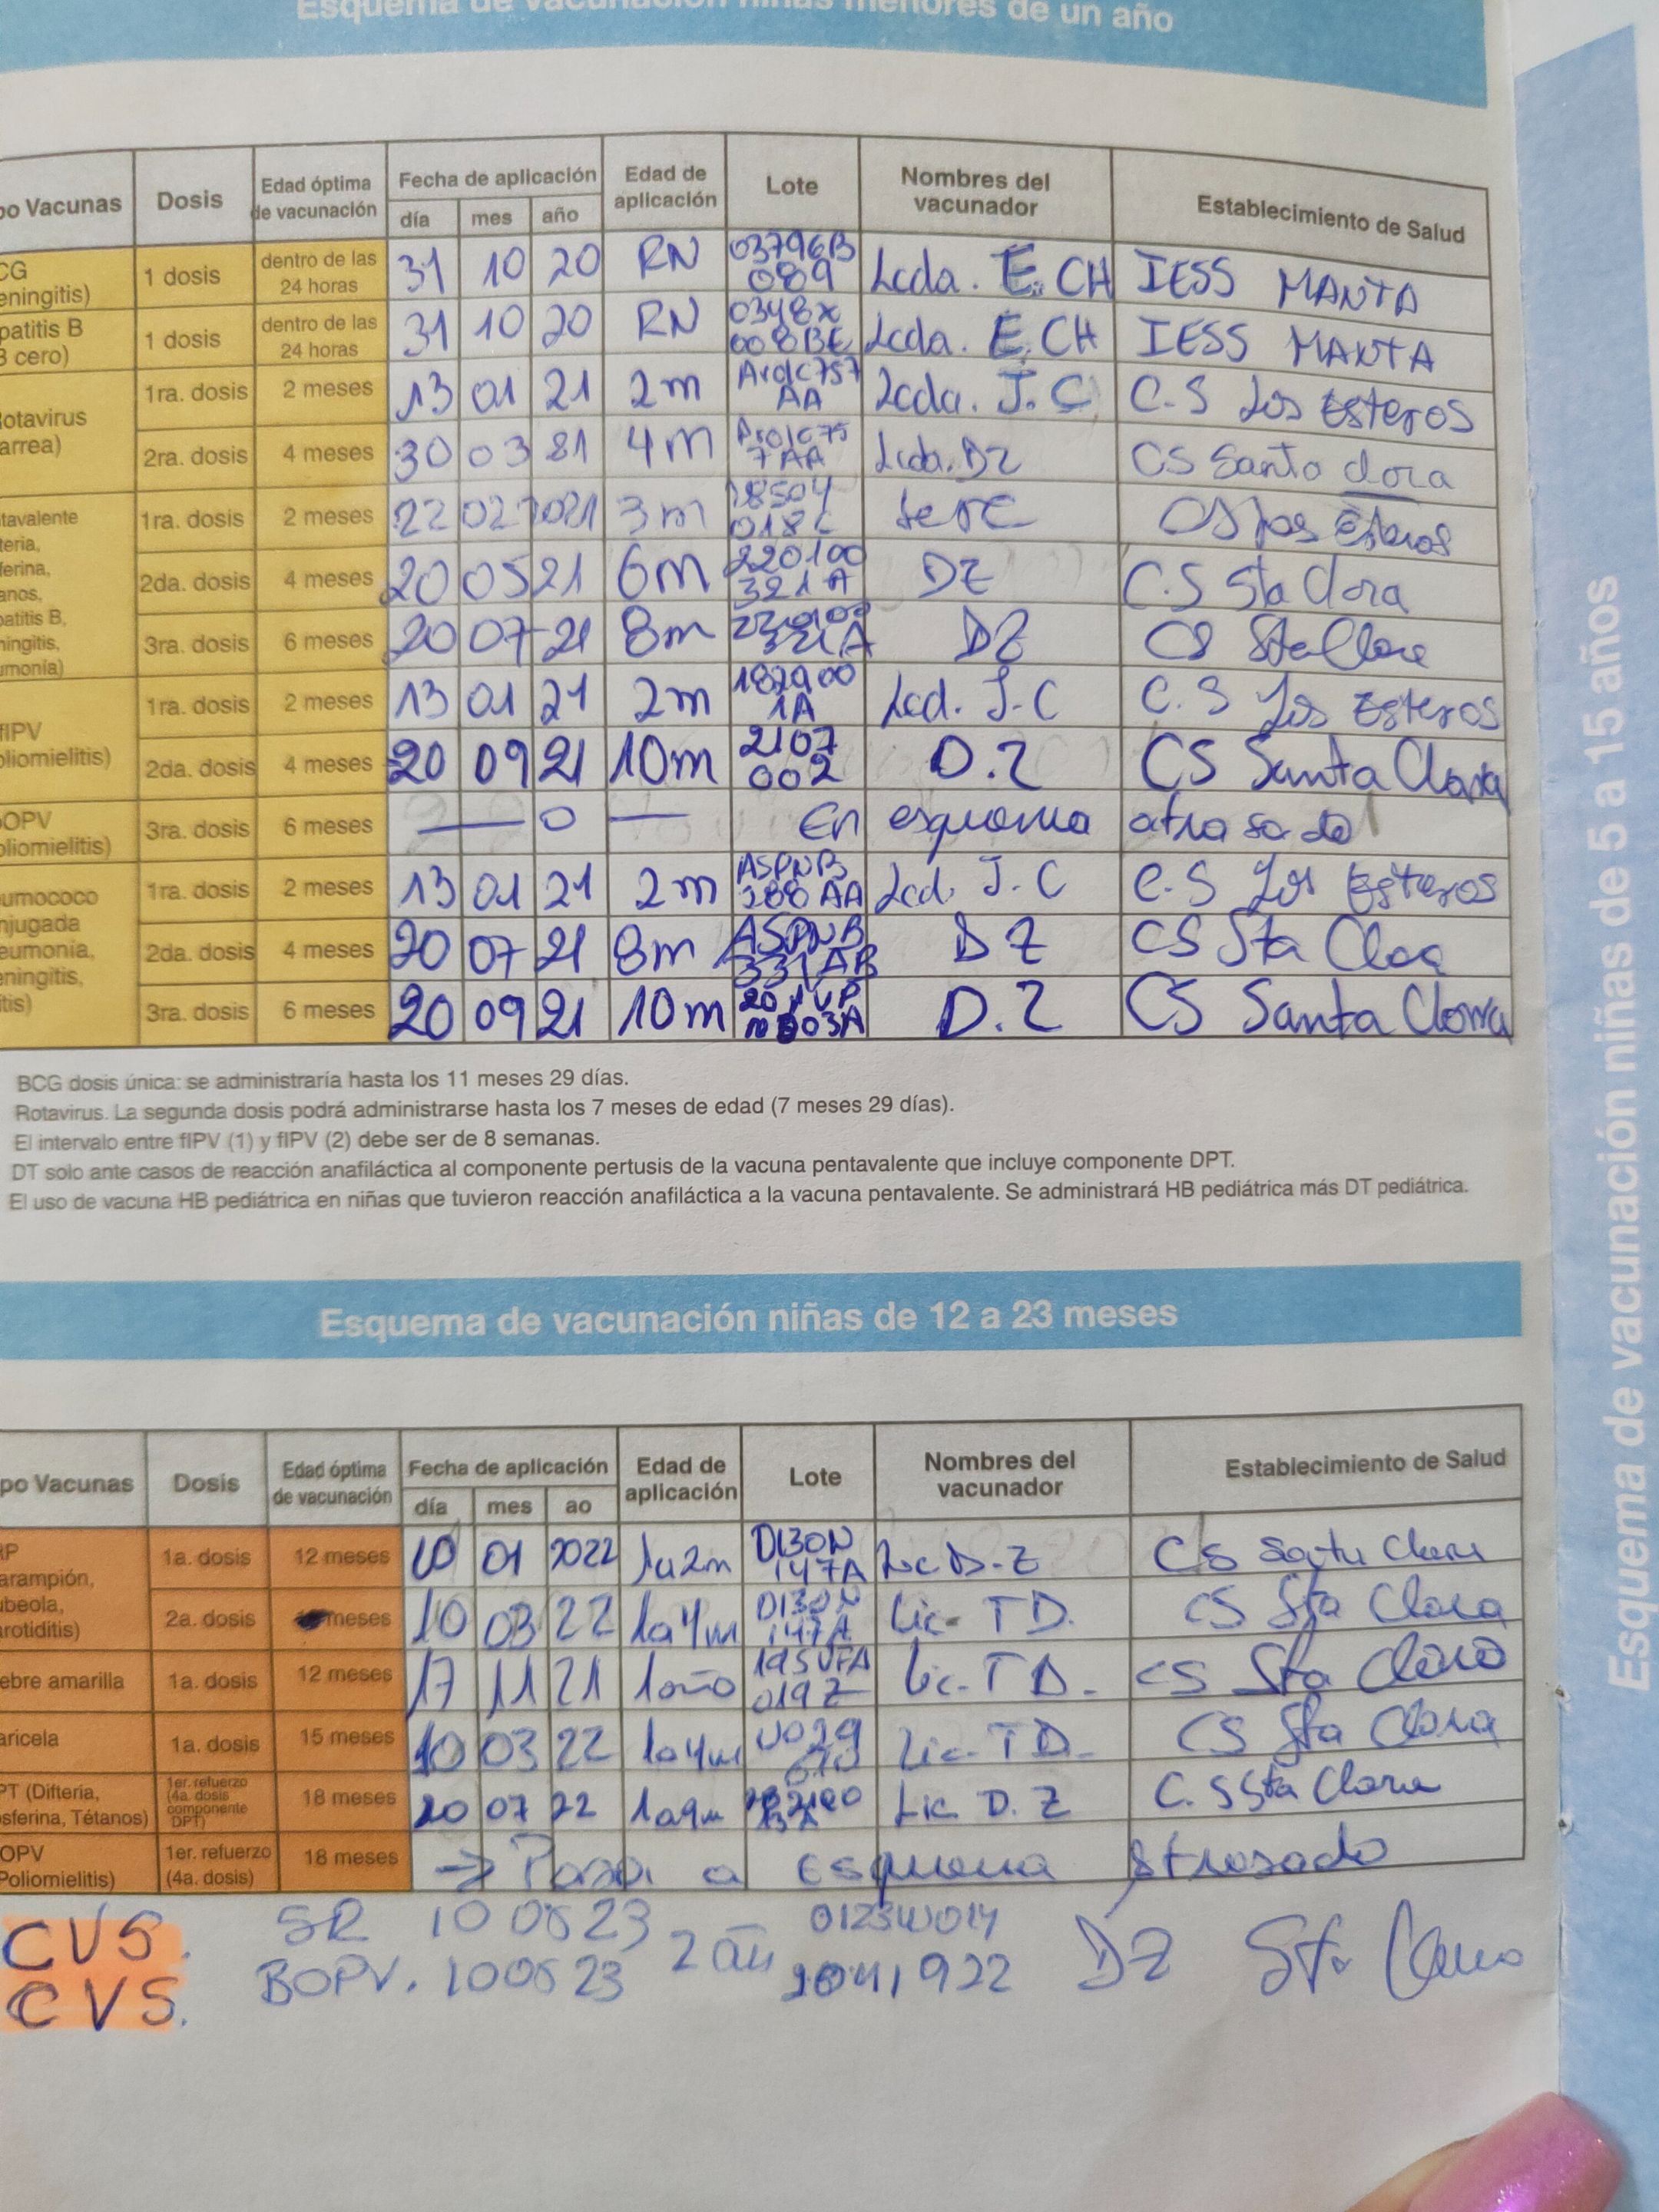 Esquema de vacunación niñas menores de un año
po Vacunas Dosis Edad óptima de vacunación Fecha de aplicación día mes año Edad de aplicación Lote Nombres del vacunador Establecimiento de Salud
CG eningitis) 1 dosis dentro de las 24 horas 31 10 20 RN 03796B 089 Lcda. E. CH IESS MANTA
patitis B B cero) 1 dosis dentro de las 24 horas 31 10 20 RN 0348X 008BE Lcda. E. CH IESS MANTA
otavirus arrea) 1ra. dosis 2 meses 13 01 21 2m AA Lcda. J. C C.S Los Esteros
2ra. dosis 4 meses 30 03 21 4m 7AA Lcda. DZ CS Santa Clara
tavalente teria, ferina, anos, patitis B, ningitis, umonía) 1ra. dosis 2 meses 22 02 2021 3m 18504 018C CS Los Esteros
2da. dosis 4 meses 20 05 21 6m 220100 321A DZ C.S Sta Clara
3ra. dosis 6 meses 20 07 21 8m 220100 321A DZ CS Sta Clara
fIPV oliomielitis) 1ra. dosis 2 meses 13 01 21 2m 182900 1A Lcd. J. C C.S Los Esteros
2da. dosis 4 meses 20 09 21 10m 2107 002 D.Z CS Santa Clara
OPV oliomielitis) 3ra. dosis 6 meses — 0 — En esquema atrasado
eumococo njugada eumonía, eningitis, itis) 1ra. dosis 2 meses 13 01 21 2m ASPNB 288 AA Lcd. J. C C.S Los Esteros
2da. dosis 4 meses 20 07 21 8m ASPNB 331AB DZ CS Sta Clara
3ra. dosis 6 meses 20 09 21 10m D.Z CS Santa Clara
BCG dosis única: se administraría hasta los 11 meses 29 días.
Rotavirus. La segunda dosis podrá administrarse hasta los 7 meses de edad (7 meses 29 días).
El intervalo entre fIPV (1) y fIPV (2) debe ser de 8 semanas.
DT solo ante casos de reacción anafiláctica al componente pertusis de la vacuna pentavalente que incluye componente DPT.
El uso de vacuna HB pediátrica en niñas que tuvieron reacción anafiláctica a la vacuna pentavalente. Se administrará HB pediátrica más DT pediátrica.
Esquema de vacunación niñas de 12 a 23 meses
po Vacunas Dosis Edad óptima de vacunación Fecha de aplicación día mes ao Edad de aplicación Lote Nombres del vacunador Establecimiento de Salud
RP arampión, ubeola, arotiditis) 1a. dosis 12 meses 10 01 2022 1a2m 0130N 147A Lic D.Z CS Santa Clara
2a. dosis meses 10 03 22 1a4m 0130N 147A Lic. TD. CS Sta Clara
ebre amarilla 1a. dosis 12 meses 17 11 21 1año 195VFA 019Z Lic. TD. CS Sta Clara
aricela 1a. dosis 15 meses 10 03 22 1a4m Lic. TD. CS Sta Clara
PT (Difteria, osferina, Tétanos) 1er. refuerzo (4a. dosis componente DPT) 18 meses 20 07 22 1a9m Lic. D. Z C.S Sta Clara
OPV Poliomielitis) 1er. refuerzo (4a. dosis) 18 meses → Pasa a esquema atrasado
CVS. SR 10 05 23 2 DZ Sta Clara
CVS. BOPV. 10 05 23
Esquema de vacunación niñas de 5 a 15 años